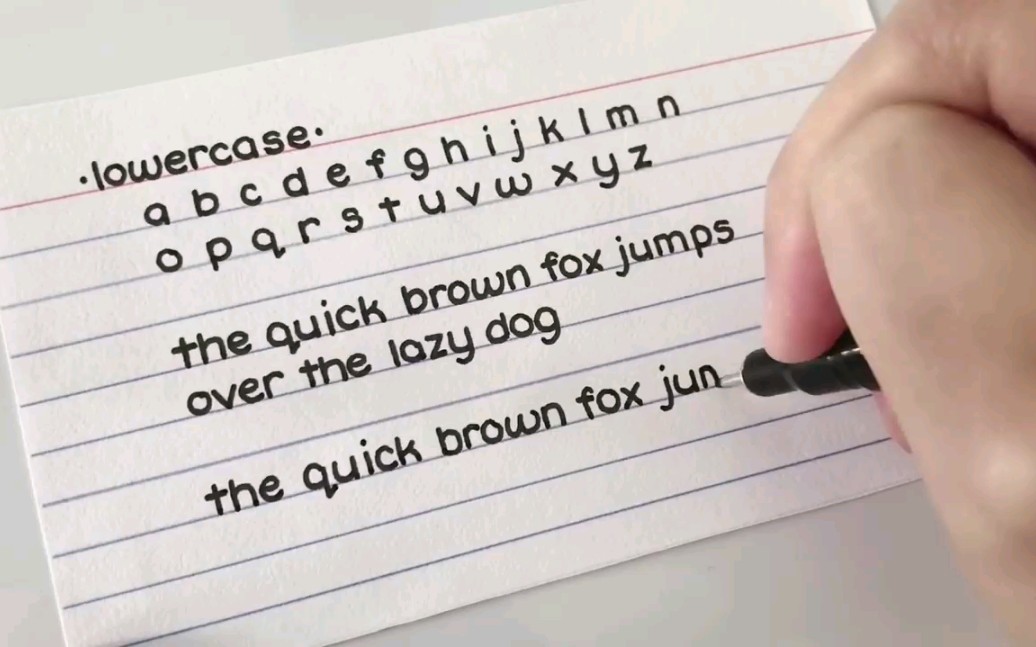 ·lowercase·
a b c d e f g h i j k l m n
o p q r s t u v w x y z
the quick brown fox jumps
over the lazy dog
the quick brown fox jun